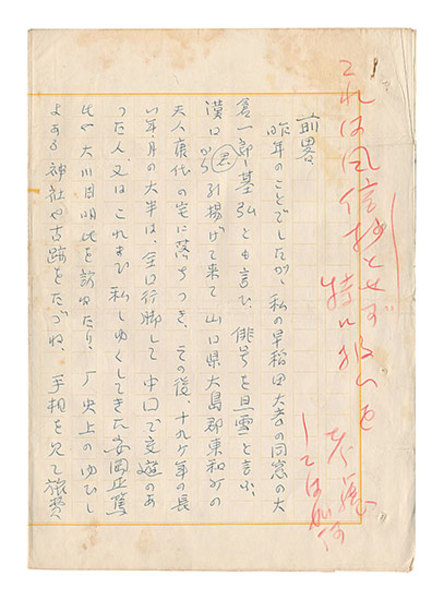 これは風信抄とせず
特に扱いを
考慮
しては如何
前畧、
昨年のことでしたが、私の早稲田大学の同窓の大
倉一郎君―基弘とも言ひ、俳号を旦雪と言ふ、
漢口から引揚げて来て山口県大島郡東和町の
夫人康代の宅に落ちつき、その後、十九ケ年の長
い年月の大半は、全国行脚して中国で交遊のあ
った人、又はこれまで私しゆくしてきた安岡正篤
氏や大川周明氏を訪ねたり、史上のゆひし
よある神社や古跡をたづね、手相を見て旅費